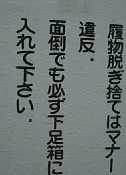 履物脱ぎ捨てはマナー
違反．
面倒でも必ず下足箱に
入れて下さい．